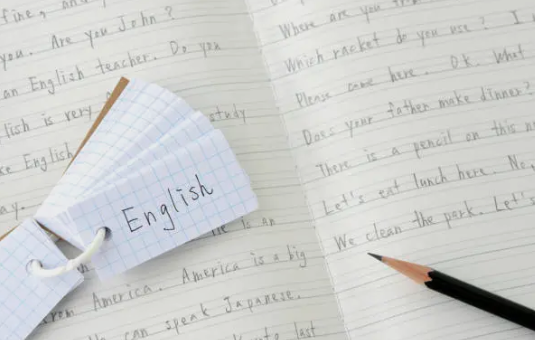 fine, and
you. Are you John?
an English teacher. Do you
lish is very
study
ke English
ay.
English
is an
from America. America is a big
can speak Japanese.
last
Where are you
Which racket do you use? I
Please came here. O.K. What
Does your father make dinner?
There is a pencil on this
Let's eat lunch here. No,
We clean the park. Let's